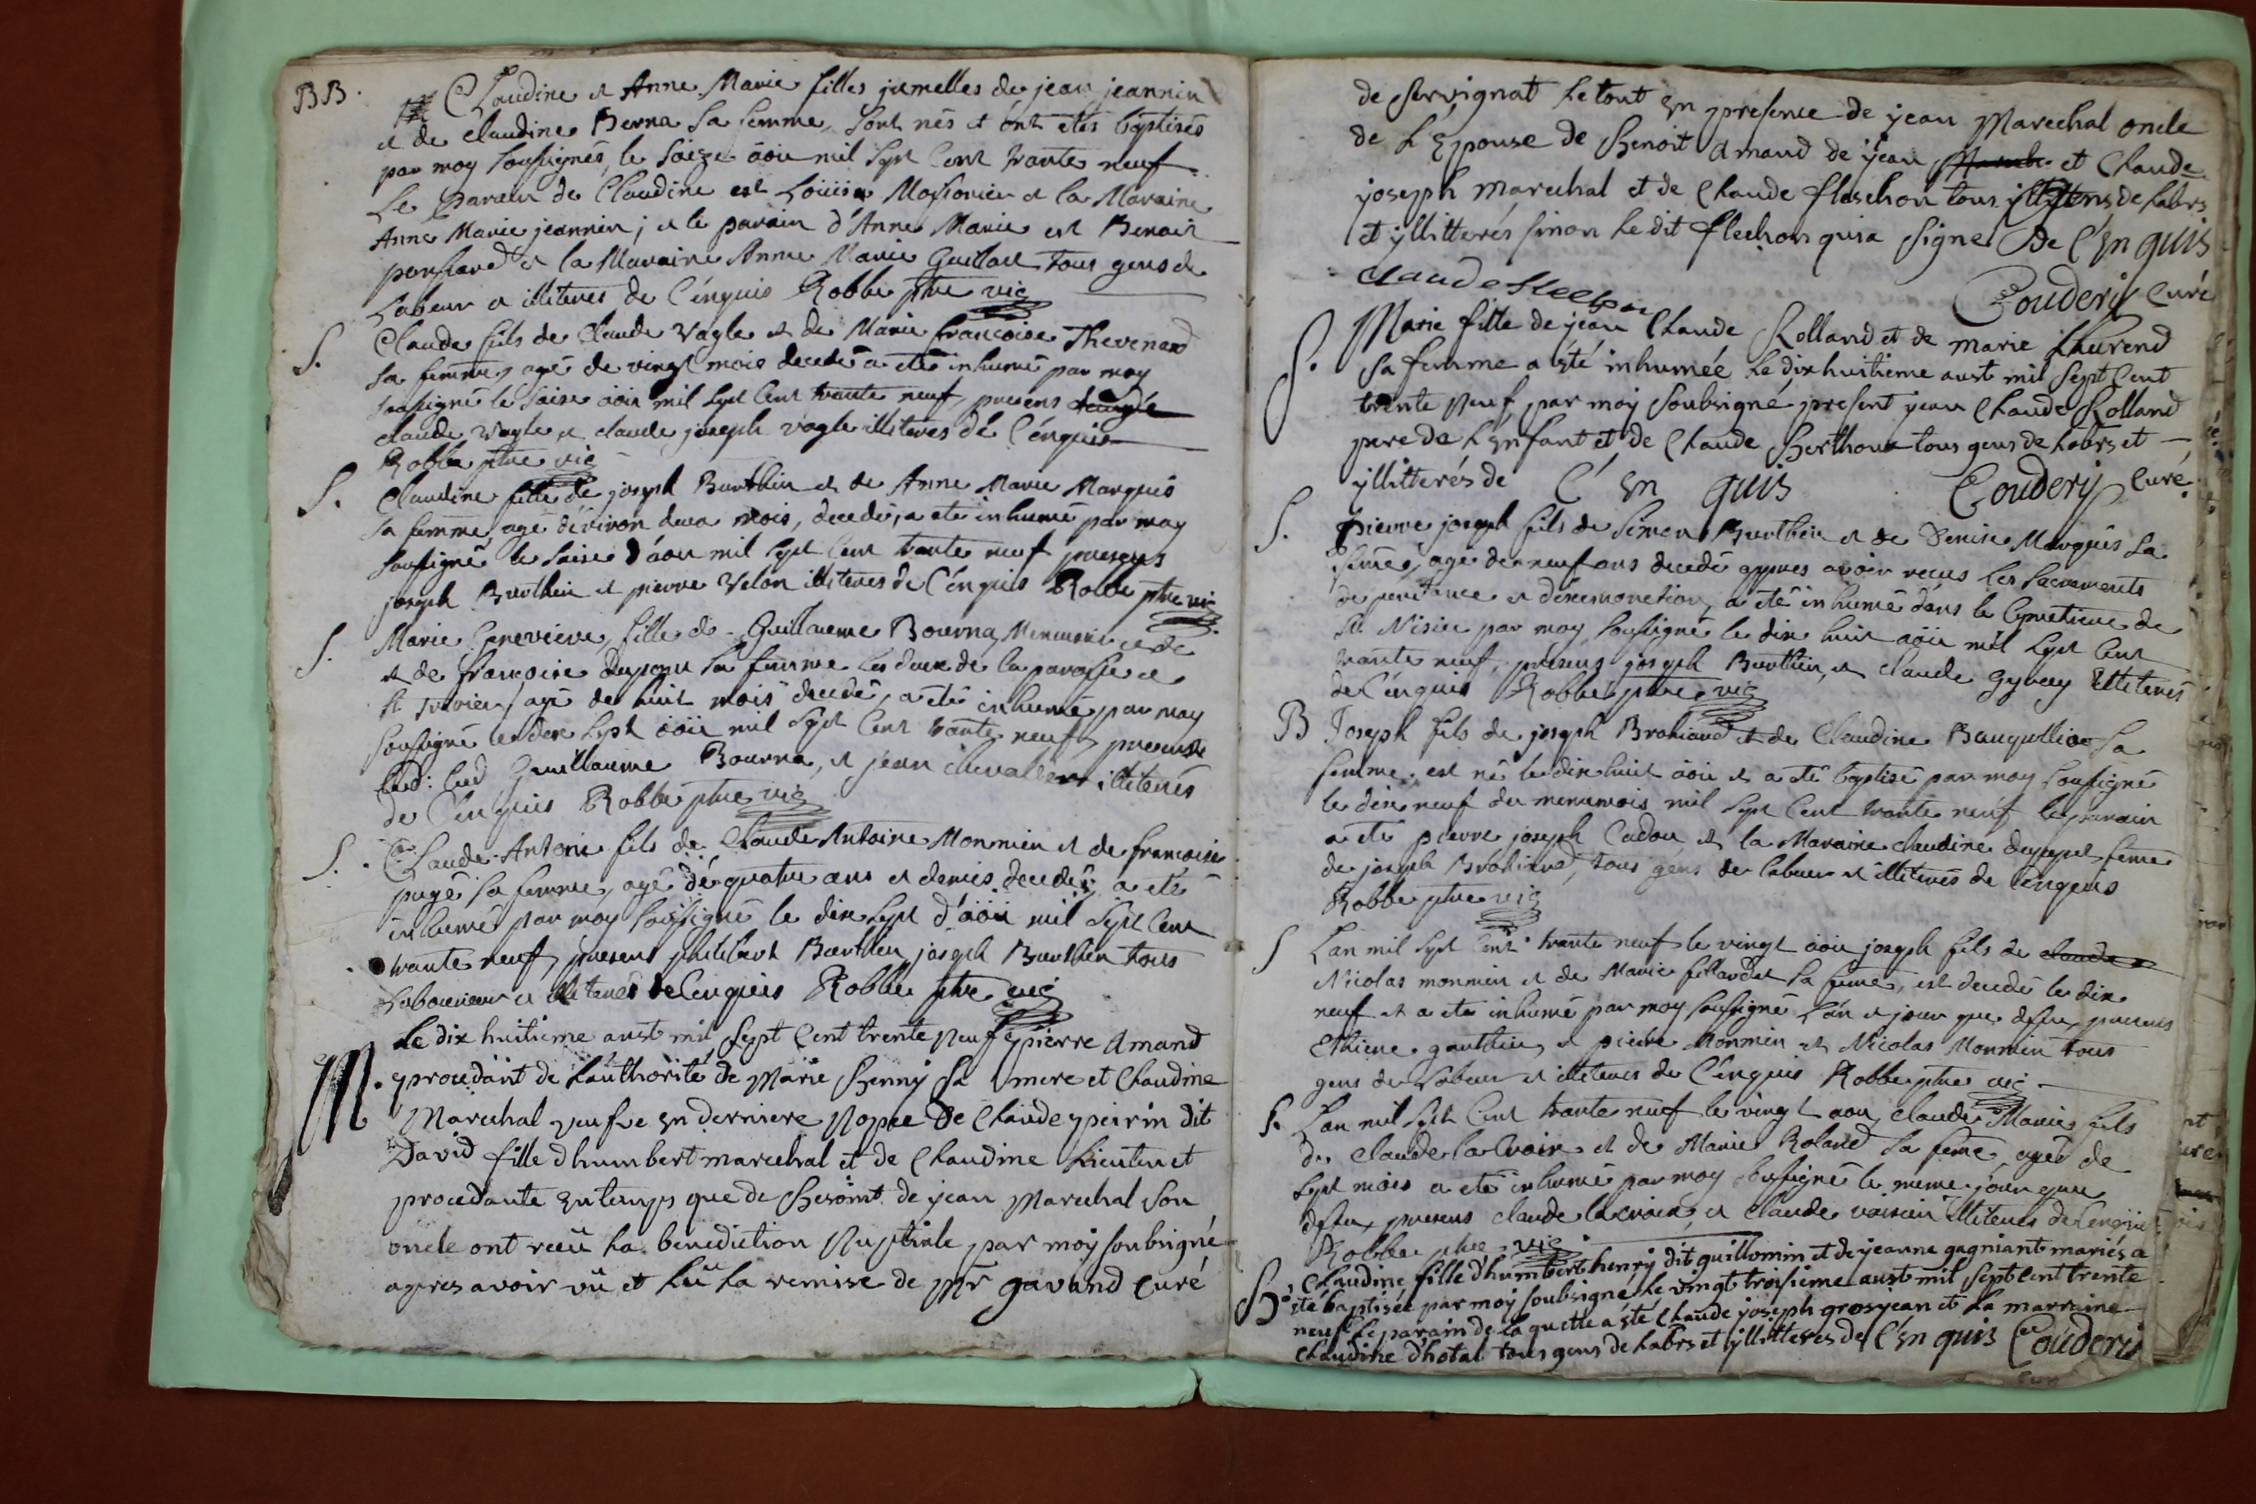 BB.
Claudine et Anne Marie filles jumelles de jean jeannin
et de claudine Berna sa femme, sont nés et ont etés baptisés
par moy soussignés, le saize aoû mil sept cent trante neuf
Le Parain de Claudine est Loüis et la Maraine
Anne Marie jeannin; et le parain d'Anne Marie est Benoit
et la Maraine Anne Marie tous gens de
Labeur et illiterés de C'énquis Robbe ptre vic
S. Claude fils de Claude vagle et de Marie francoise Thevenard
sa femme, agé de vingt mois decedé a eté inhumé par moy
soussigné le saise aoû mil sept cent trante neuf, presens
claude vagle et claude joseph vagle illiterés de C'énquis
Robbe ptre vic
S. Claudine fille de joseph Burthin et de Anne Marie Marquis
sa femme, agé d'éviron deux mois, decedé, a eté inhumé par moy
soussigné le saise d'aoû mil sept cent trante neuf presens
joseph Burthin et pierre Velon illiterés de C'énquis Robbe ptre vic
S. Marie Genevieve, fille de Guillaume Bourna,
et de francoise sa femme les deux de la paroisse de
st agé de huit mois decedé, a eté inhumé par moy
soussigné le dix sept aoû mil sept cent trante neuf, presens
led: Guillaume Bourna, et jean chevallier illiterés
de C'enquis Robbe ptre vic
S. Claude Antoine fils de Claude Antoine Monmin et de francoise
pugé sa femme, agé dé quatre ans et demis decedé, a eté
inhumé par moy soussigné le dix sept d'aoû mil sept cent
trante neuf, presens philibert Burthin joseph Burthin tous
Laboureurs et illiterés de Cenquis Robbe ptre vic
Le dix huitieme aust mil sept Cent trente neuf pierre Amand
M. procedant de Lauthorité de Marie Henny sa mere et Claudine
Marechal veufve en derniere Nopce De Claude peirin dit
David fille dhumbert marechal et de Claudine
procedante en temps que de Besoint de jean Marechal son
oncle ont reçu La benediction Nuptiale par moy soubsigné
apres avoir vû et Lû La remise de Mr gavand Curé
de servignat Le tout en presence de jean Marechal oncle
de L'épouse de Benoit Amand de jean et Claude
joseph Marechal et de Claude fleschon tous de Labrs
et yllitterés sinon Le dit flechon qui a signe De C'en quis
Claude flechon
Couderij Curé
S. Marie fille de jean Claude Rolland et de marie Laurend
sa femme a été inhumée Le dixhuitieme aust mil Sept Cent
trente neuf par moy soubsigné present jean Claude Rolland
pere de L'enfant et de Claude Berthoux tous gens de Labrs et
yllitterés de C'en quis Couderij Curé
S. pierre joseph fils de Simon Burthin et de Denise Marquis sa
feme, agé de neuf ans decedé appres avoir recus les sacrements
de penitance et a eté inhumé dans le Cymetiere de
St Nisier par moy soussigné le dix huit aoû mil sept cent
trante neuf, présens joseph Burthin, et claude illiterés
de C'énquis Robbe ptre vic
B Joseph fils de joseph et de Claudine sa
femme est né le dix huit aoû et a eté baptisé par moy soussigné
le dix neuf du meme mois mil sept cent trante neuf le parain
a eté pierre joseph Cadou et la Maraine claudine feme
de joseph tous gens de labeur et illiterés de Cénquis
Robbe ptre vic
S Lan mil sept Cent trante neuf le vingt aoû joseph fils de claude
Nicolas monmin et de Marie fillardet sa feme, est decedé le dix
neuf et a eté inhumé par moy soussigné L'an et jour que dessu, presens
Ethiene gauthier, et pierre Monmin et Nicolas Monmin tous
gens de Labeur et illiterés de C'énquis Robbe ptre vic
S. Lan mil sept Cent trante neuf le vingt aou, claude Marie fils
de claude la croix et de Marie Roland sa feme, agée de
sept mois a eté inhumé par moy soussigné le meme jour que
dessu, presens claude lacroix, et claude voisin illiterés de Cenquis
Robbe ptre vic
B. Claudine fille dhumbert henry dit guillomin et de jeanne gagniant mariés a
eté baptisée par moy soubsigné Le vingt troisieme aust mil sept cent trente
neuf Le parain de Laquelle a été Claude joseph grosjean et La marraine
Claudine d'hotal tous gens de Labrs et yllitterés de C'en quis Couderij